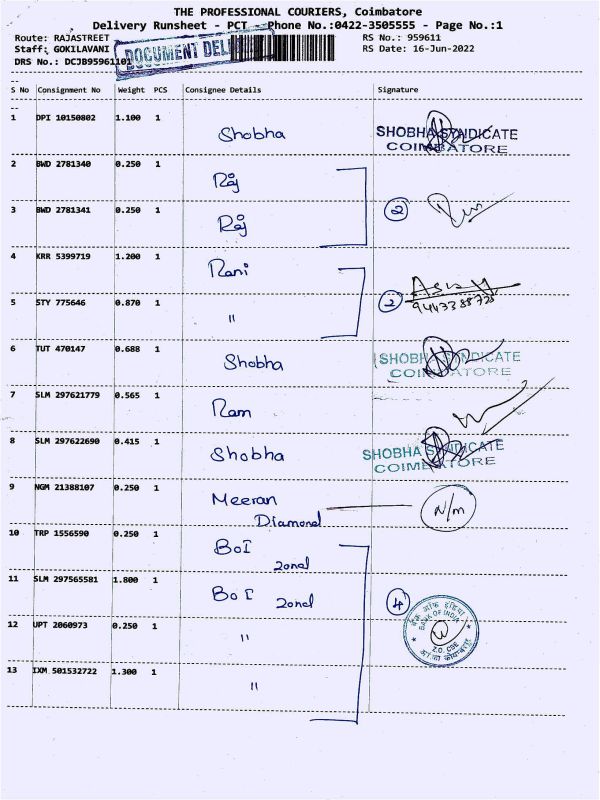 THE PROFESSIONAL COURIERS, Coimbatore
Delivery Runsheet - PCT - Phone No.:0422-3505555 - Page No.:1
Route: RAJASTREET RS No.: 959611
Staff: GOKILAVANI DOCUMENT DEL RS Date: 16-Jun-2022
DRS No.: DCJB95961101
S No Consignment No Weight PCS Consignee Details Signature
1 DPI 10150802 1.100 1 Shobha SHOBHA SYNDICATE
COIMBATORE
2 BWD 2781340 0.250 1 Raj
3 BWD 2781341 0.250 1 Raj 2
4 KRR 5399719 1.200 1 Rani
5 STY 775646 0.870 1 " 2
6 TUT 470147 0.688 1 Shobha SHOBHA SYNDICATE
COIMBATORE
7 SLM 297621779 0.565 1 Ram
8 SLM 297622690 0.415 1 Shobha SHOBHA SYNDICATE
COIMBATORE
9 NGM 21388107 0.250 1 Meeran
Diamond N/m
10 TRP 1556590 0.250 1 BOI
Zonal
11 SLM 297565581 1.800 1 BOI Zonal 4
12 UPT 2060973 0.250 1 "
बैंक ऑफ इंडिया
BANK OF INDIA
Z.O. CBE
13 IXM 501532722 1.300 1 "